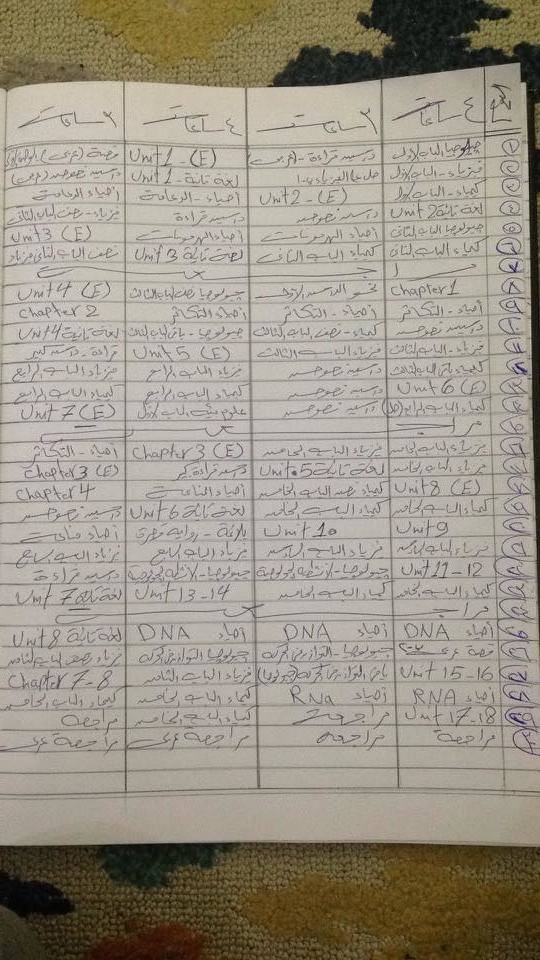 ٤ ساعات ٣ ساعات ٤ ساعات ٣ ساعات
١ جيولوجيا الباب الأول درسين قراءة - (عربى) Unit 1 - (E) قصة (عربى)
٢ فيزياء - الباب الأول لغة تانية Unit 1 درسين نصوص (عربى)
٣ كيمياء - الباب الأول Unit 2 - (E) أحياء - الدعامة أحياء الدعامة
٤ لغة تانية Unit 2 درسين نصوص درسين قراءة فيزياء - نصف الباب الثانى
٥ جيولوجيا الباب الثانى أحياء الهرمونات أحياء الهرمونات Unit 3 (E)
٦ كيمياء الباب الثانى كيمياء الباب الثانى لغة تانية Unit 3 نصف الباب الثانى فيزياء
٧ مراجعة
٨ Chapter 1 نحو جيولوجيا نصف الباب الثالث Unit 4 (E)
٩ أحياء - التكاثر أحياء - التكاثر أحياء - التكاثر Chapter 2
١٠ درسين نصوص كيمياء - نصف الباب الثالث جيولوجيا - باقى الباب الثالث لغة تانية Unit 4
١١ فيزياء - الباب الثالث فيزياء الباب الثالث Unit 5 (E) قراءة - درسين
كيمياء باقى الباب الثالث درسين نصوص فيزياء الباب الرابع فيزياء الباب الرابع
Unit 6 (E) درسين نصوص كيمياء الباب الرابع كيمياء الباب الرابع
كيمياء الباب الرابع (حل) درسين نصوص Unit 7 (E)
مراجعة
فيزياء الباب الخامس فيزياء الباب الخامس Chapter 3 (E) أحياء - التكاثر
فيزياء الباب الخامس لغة تانية Unit 5 درسين قراءة Chapter 3 (E)
Unit 8 (E) كيمياء نصف الباب الخامس أحياء المناعة Chapter 4
كيمياء الباب الخامس كيمياء الباب الخامس لغة تانية Unit 6 درسين نصوص
Unit 9 Unit 10 بلاغة - أحياء مناعة
فيزياء الباب السادس فيزياء الباب السادس فيزياء الباب السابع فيزياء الباب السابع
Unit 11-12 جيولوجيا - الأنشطة الجيولوجية جيولوجيا - الأنشطة الجيولوجية درسين قراءة
كيمياء الباب الخامس كيمياء الباب الخامس Unit 13-14 لغة تانية Unit 7
مراجعة
أحياء DNA أحياء DNA أحياء DNA لغة تانية Unit 8
قصة عربى جيولوجيا - التوازن فى الحركة جيولوجيا التوازن فى الحركة فيزياء نصف الباب الثامن
Unit 15-16 باقى التوازن فى الحركة (جيولوجيا) فيزياء الباب الثامن Chapter 7-8
أحياء RNA أحياء RNA كيمياء الباب الخامس كيمياء الباب الخامس
Unit 17-18 مراجعة كيمياء الباب الخامس مراجعة
مراجعة مراجعة مراجعة عربى مراجعة عربى